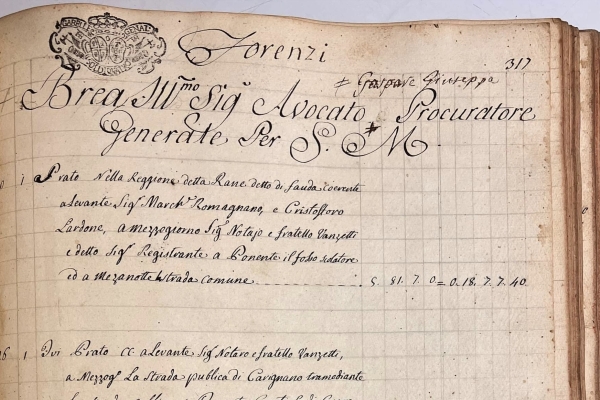 Forenzi
317
+ Gaspare Giuseppa
Brea Ill.mo Sig.r Avocato Procuratore
Generale Per S. M.
1 Prato Nella Reggione detta Rane detto di fauda coerente
a Levante Sig.r March.e Romagnano, e Cristofforo
Lardone, a mezzogiorno Sig.r Notajo e fratello Vanzetti
e detto Sig.r Registrante a Ponente il fosso
ed a Mezanotte la strada comune 5. 81. 7. 0 = 0. 18. 7. 7. 40
1 Ivi Prato CC. a Levante Sig.r Notaro e fratello Vanzetti,
a Mezzog.o La strada publica di Carignano tramediante